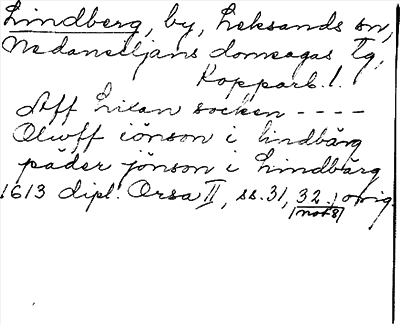 Lindberg, by, Leksands sn,
Nedansiljans domsagas tg,
Kopparb. l.
Aff Lixan socken ----
Olwff iönson i lindbärg
päder jönson i Lindbärg
1613 dipl. Orsa II, ss. 31, 32, orig.
not 8